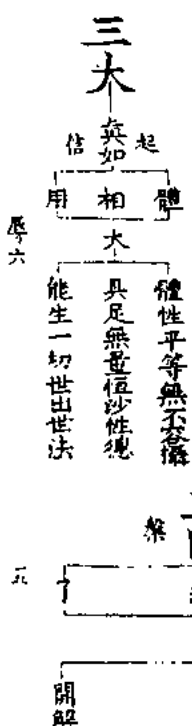 三大
起
真如
信
體
相
用
大
體性平等無不容攝
具足無量恒沙性德
能生一切世出世法
辱六
了
開解